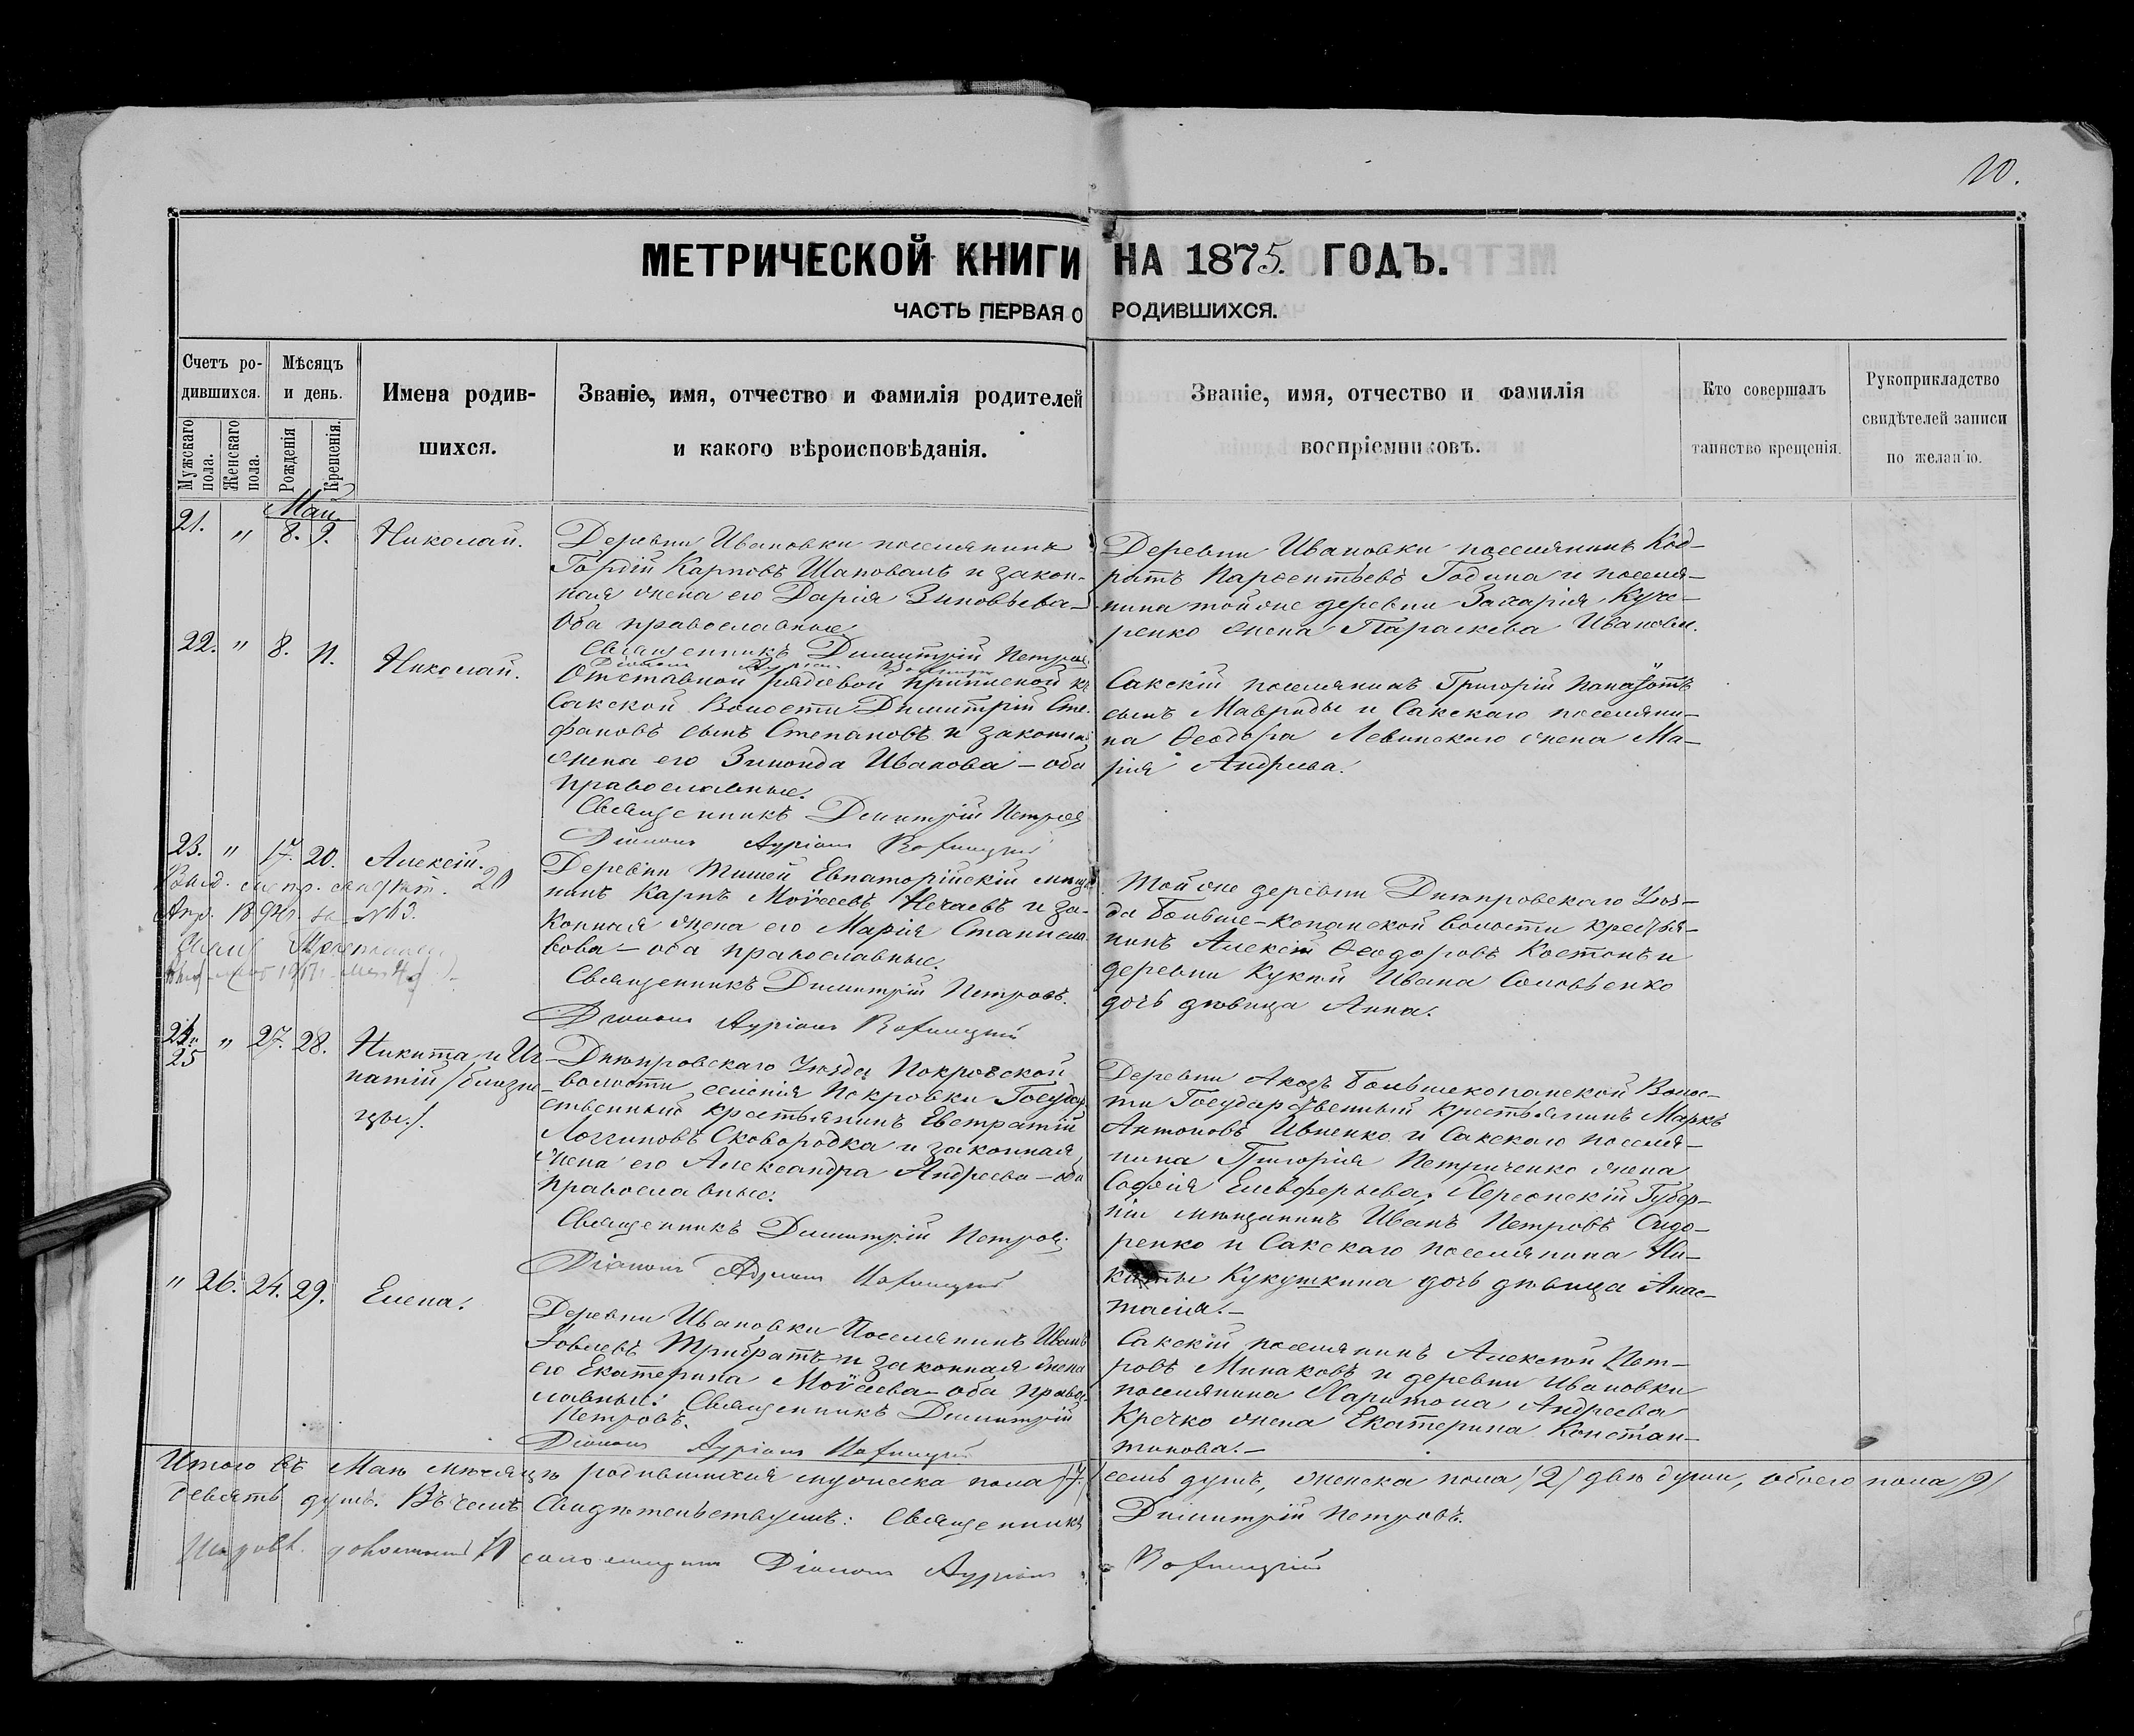 10.
МЕТРИЧЕСКОЙ КНИГИ НА 1875. ГОДЪ.
ЧАСТЬ ПЕРВАЯ О РОДИВШИХСЯ.
Счетъ ро-
дившихся.
Мужскаго пола.
Женскаго пола.
Мѣсяцъ
и день.
Рожденія
Крещенія.
Имена родив-
шихся.
Званіе, имя, отчество и фамилія родителей
и какого вѣроисповѣданія.
Званіе, имя, отчество и фамилія
воспріемниковъ.
Кто совершалъ
таинство крещенія.
Рукоприкладство
свидѣтелей записи
по желанію.
Май
21. " 8. 9. Николай.
Деревни Ивановки поселянинъ
Гордій Карповъ Шаповалъ и закон-
ная жена его Дарія Зиновьева-
Оба православные
Священникъ Димитрій Петровъ
Деревни Ивановки поселянинъ Код-
ратъ Парѳентьевъ Година и поселя-
нина тойже деревни Захарія Куче-
ренко жена Параскева Иванова.
22. " 8. 11. Николай.
Отставной рядовой приписной къ
Сакской Волости Димитрій Сте-
фановъ сынъ Степановъ и законная
жена его Зинаида Иванова - оба
православные.
Священникъ Димитрій Петровъ
Діаконъ
Сакскій поселянинъ Григорій
сынъ Мавриды и Сакскаго поселяни-
на Ѳеодора Левинскаго жена Ма-
рія Андреева.
23. " 17. 20. Алексій.
Деревни Тишей Евпаторійскій мѣщ
нинъ Карпъ Моѵсеевъ Нечаевъ и за-
конная жена его Марія Станисла
вова - оба православные.
Священникъ Димитрій Петровъ.
Діаконъ
Тойже деревни Днѣпровскаго Уѣз-
да Больше-Копанской волости крестья-
нинъ Алексій Ѳеодоровъ и
деревни Ивана Соловьенко
дочь дѣвица Анна.
24. 25 " 27. 28. Никита и Иг-
натій /близне-
цы./.
Днѣпровскаго Уѣзда Покровской
волости селенія Покровки Государ
ственный крестьянинъ Евстратій
Логгиновъ Сковородка и законная
жена его Александра Андреева - оба
православные.
Священникъ Димитрій Петровъ.
Діаконъ
Деревни Большекопанской Волос-
ти Государственный Крестьянинъ Маркъ
Антоновъ Ивненко и Сакскаго поселя-
нина Григорія Петриченко жена
Софія Елевферьева. Херсонскій Губер-
ніи мѣщанинъ Иванъ Петровъ Сидо-
ренко и Сакскаго поселянина Ни-
киты Кукушкина дочь дѣвица Анас-
тасія.-
" 26. 24. 29. Елена.
Деревни Ивановки Поселянинъ Иванъ
Іовлевъ Трибратъ и законная жена
его Екатерина Моѵсеева - оба право-
славные. Священникъ Димитрій
Петровъ.
Діаконъ
Сакскій поселянинъ Алексѣй Пет-
ровъ Минаковъ и деревни Ивановки
поселянина Харитона Андреева
Кречко жена Екатерина Констан-
тинова.-
Итого въ Маѣ мѣсяцѣ родившихся мужеска пола /7./ семь душъ, женска пола /2/ двѣ души, обоего пола /9/
девять душъ. Въ чемъ Свидѣтельствуемъ: Священникъ Димитрій Петровъ.
Діаконъ